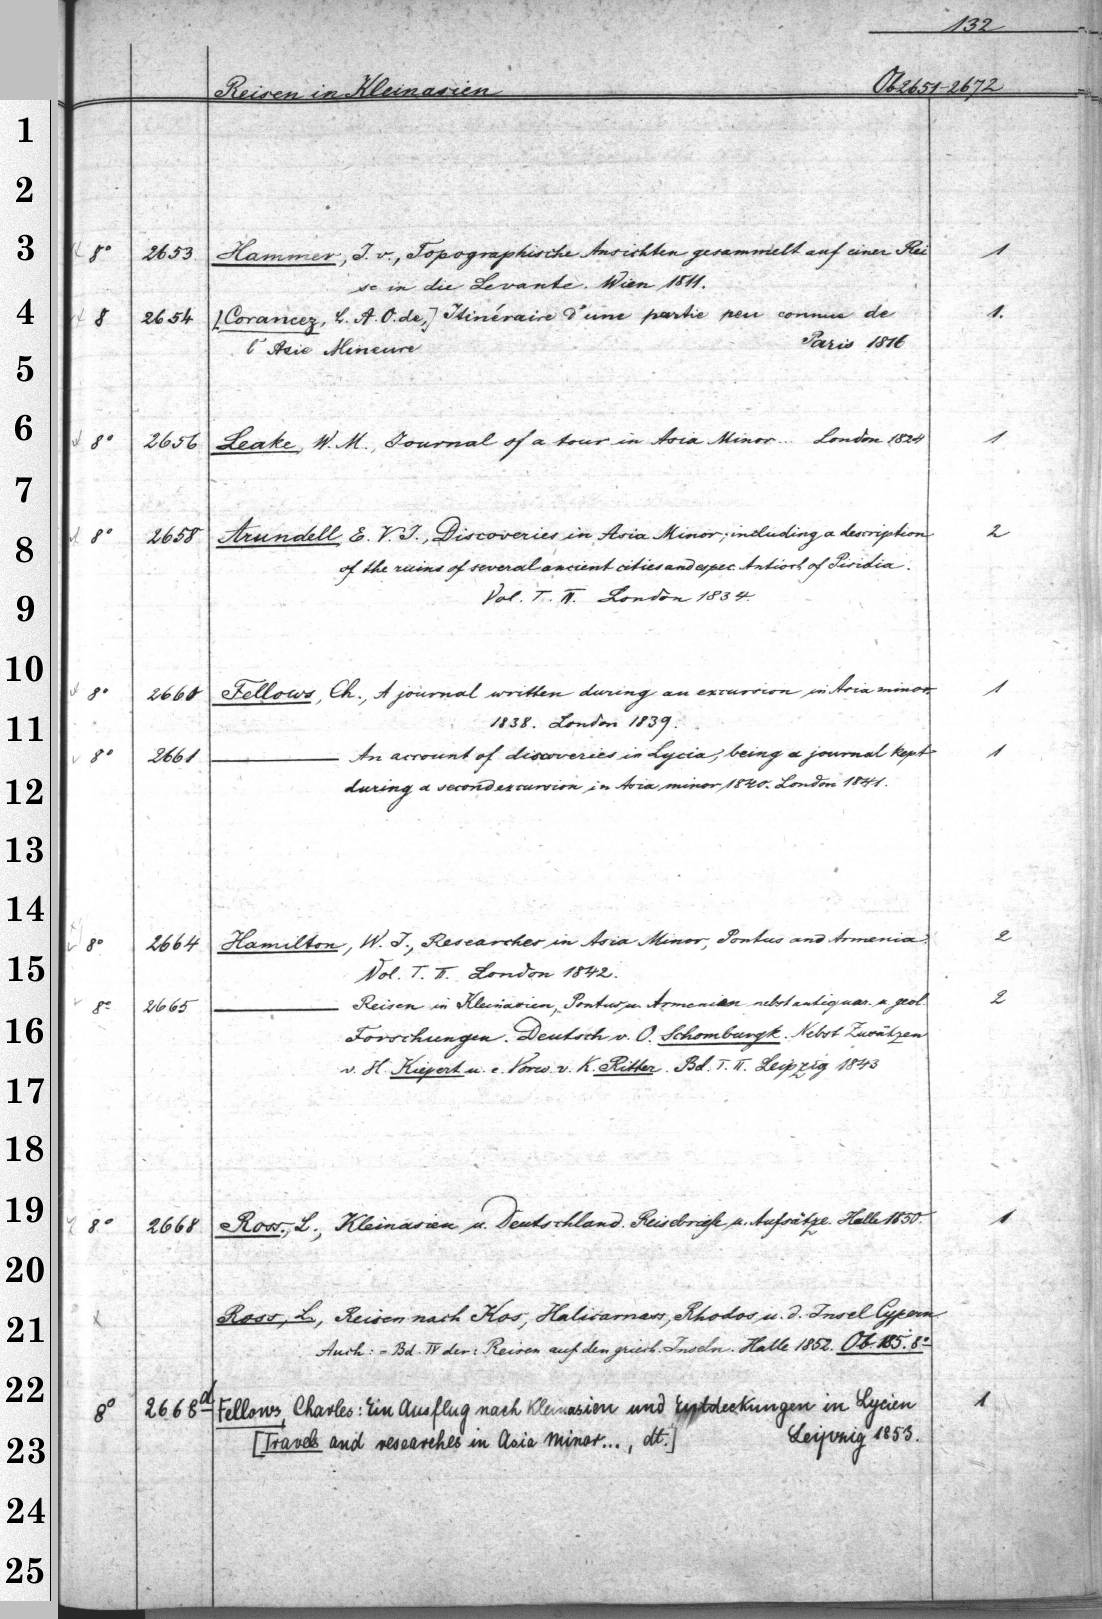 132
Reisen in Kleinasien Ob 2651-2672
1
2
3 8° 2653 Hammer, J. v., Topographische Ansichten gesammelt auf einer Rei 1
se in die Levante. Wien 1811.
4 8 2654 [Corancez, L. A. O. de,] Itinéraire d'une partie peu connue de 1.
l'Asie Mineure Paris 1816
5
6 8° 2656 Leake, W. M., Journal of a tour in Asia Minor... London 1824 1
7
8 8° 2658 Arundell, E. V. J., Discoveries in Asia Minor; including a description 2
of the ruins of several ancient cities and espec. Antioch of Pisidia.
9 Vol. I. II. London 1834.
10 8° 2660 Fellows, Ch., A journal written during an excursion in Asia minor 1
11 1838. London 1839.
8° 2661 ——— An account of discoveries in Lycia, being a journal kept 1
12 during a second excursion in Asia minor 1840. London 1841.
13
14 8° 2664 Hamilton, W. J., Researches in Asia Minor, Pontus and Armenia. 2
15 Vol. I. II. London 1842.
8° 2665 ——— Reisen in Kleinasien, Pontus u. Armenien nebst antiquar. u. geol. 2
16 Forschungen. Deutsch v. O. Schomburgk. Nebst Zusätzen
v. H. Kiepert u. e. Vorw. v. K. Ritter. Bd. I. II. Leipzig 1843
17
18
19 8° 2668 Ross, L., Kleinasien u. Deutschland. Reisebriefe u. Aufsätze. Halle 1850. 1
20
21 Ross, L., Reisen nach Kos, Halicarnass, Rhodos u. d. Insel Cypern
Auch: = Bd. IV der: Reisen auf den griech. Inseln. Halle 1852. Ob 185. 8°
22 8° 2668 a Fellows, Charles: Ein Ausflug nach Kleinasien und Entdeckungen in Lycien 1
23 [Travels and researches in Asia minor..., dt.] Leipzig 1853.
24
25